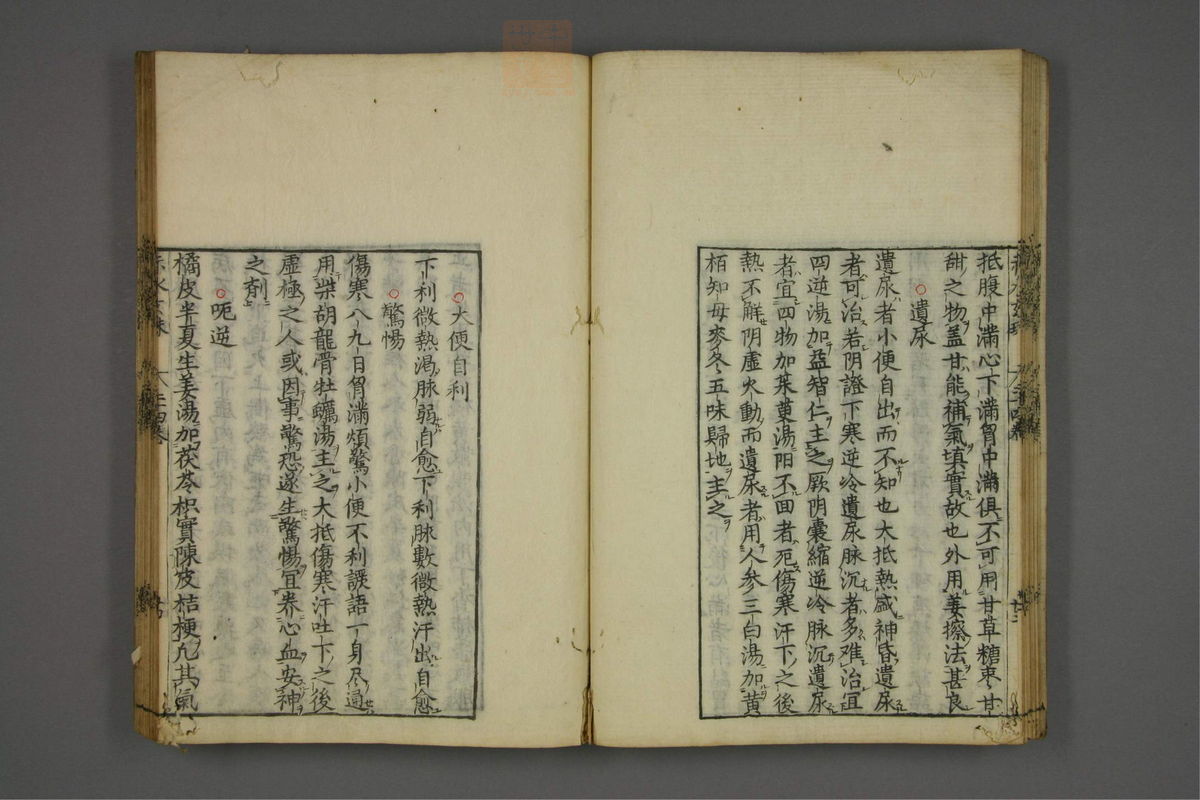 抵腹中滿心下滿胷中滿俱不可用甘草糖枣甘
甜之物盖甘能補氣填實故也外用姜擦法甚良
遺尿
遺尿者小便自出而不知也大抵熱盛神昏遺尿
者可治若阴證下寒逆冷遺尿脉沉者多难治冝
四逆湯加益智仁主之厥阴囊縮逆冷脉沉遺尿
者宜四物加茱萸湯阳不回者死傷寒汗下之後
熱不觧阴虚火動而遺尿者用人参三白湯加黄
栢知母麥冬五味歸地主之
大便自利
下利微熱渴脉弱自愈下利脉數微熱汗出自愈
驚惕
傷寒八九日胷滿煩驚小便不利譫語一身尽
用柴胡龍骨牡蠣湯主之大抵傷寒汗吐下之後
虚極之人或因事驚恐遂生驚惕冝养心血安神
之劑
呃逆
橘皮半夏生姜湯加茯苓枳實陳皮桔梗凢其氣